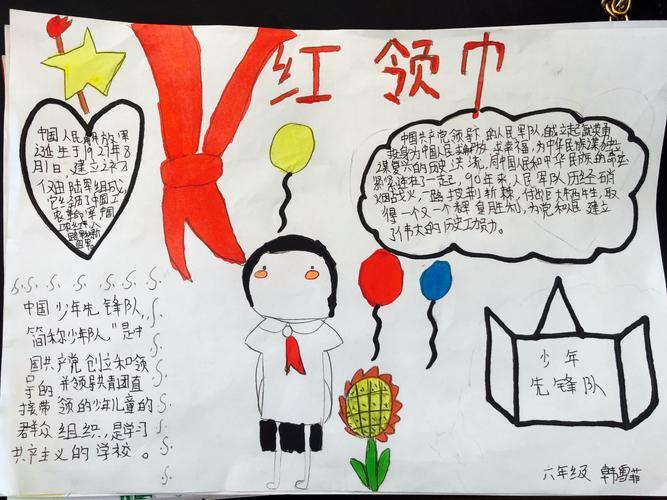 红领巾
中国人民解放军
诞生于1927年8
月1日，建立初
仅由陆军组成，
中国共产党领导下的人民军队自成立起就英勇
投身为中国人民求解放、求幸福，为中华民族谋
谋复兴的历史洪流，同中国人民和中华民族的命运
紧紧连在了一起，90年来人民军队历经硝
烟战火，一路披荆斩棘，付出巨大牺牲，取
得一个又一个辉煌胜利，为党和人民建立
了伟大的历史功勋。
中国少年先锋队，
简称少年队"是中
国共产党创立和领
导的并领导共青团直
接带领的少年儿童的
群众组织，是学习
共产主义的学校。
少年
先锋队
六年级 韩雪菲